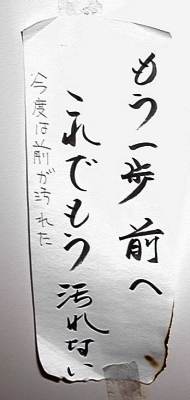 もう一歩 前へ
これでもう 汚れない
今度は前が汚れた